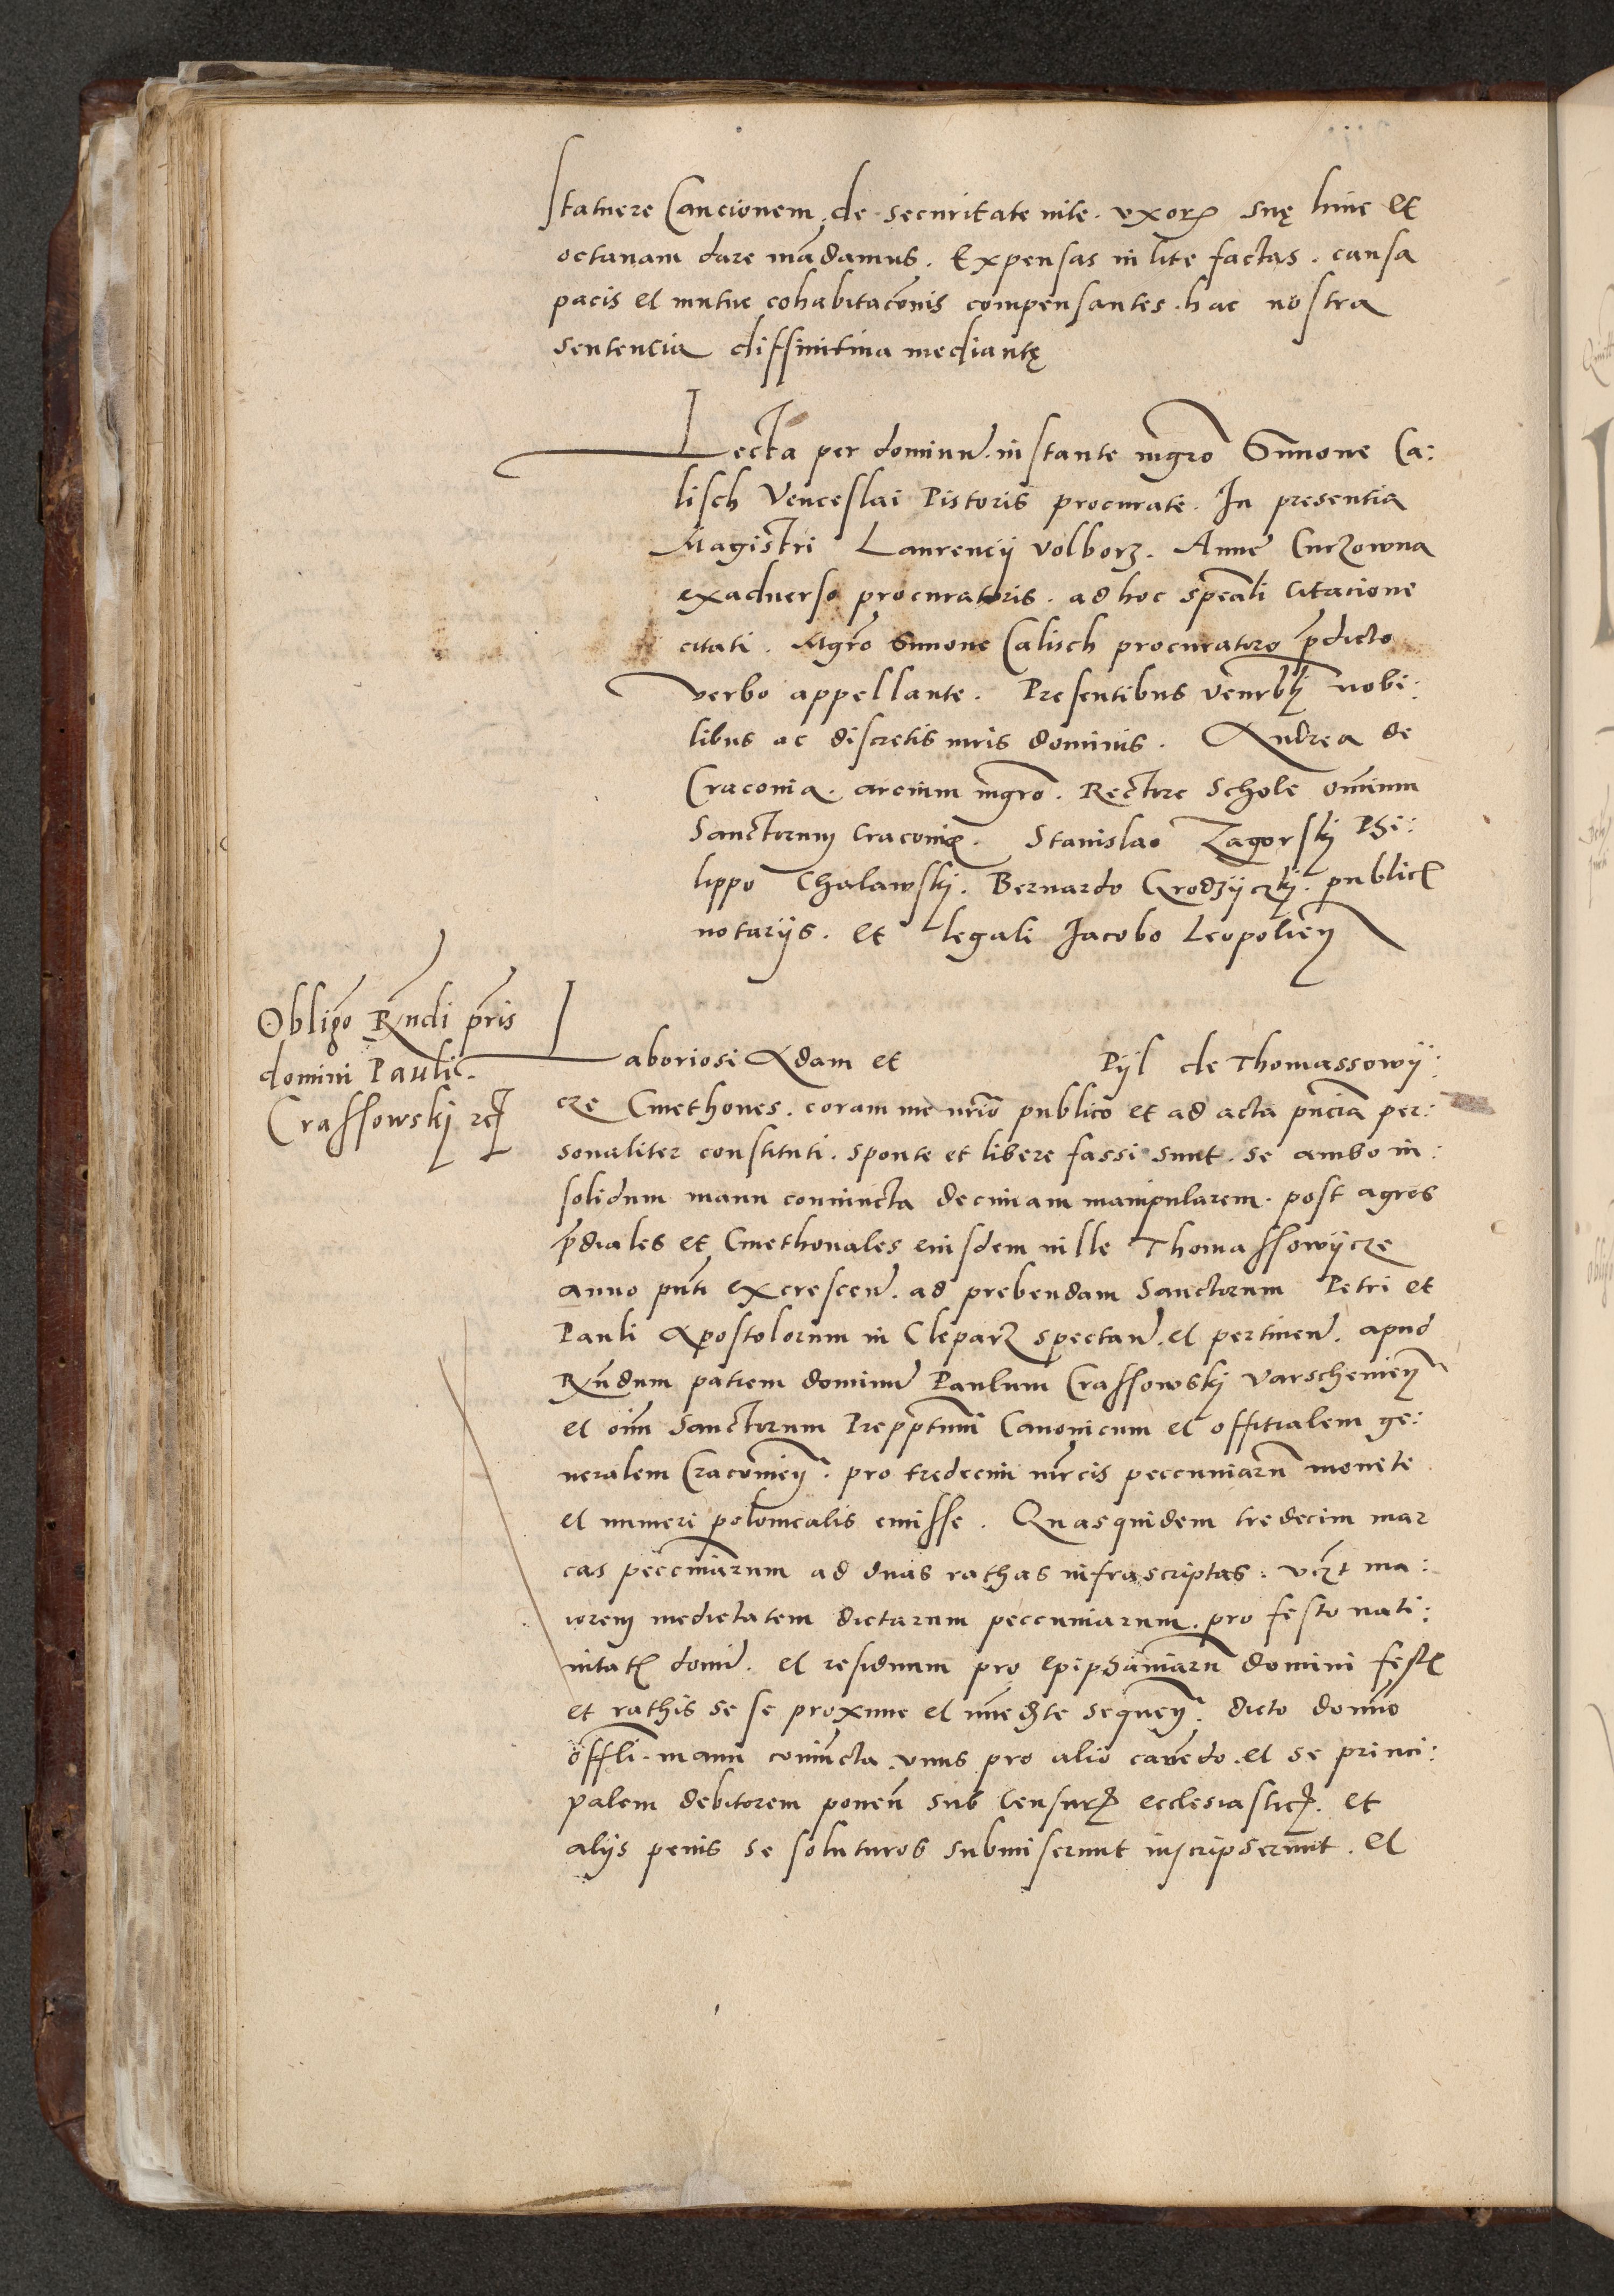 statuere Caucionem de securitate vite uxoris suę hinc et
octauam dare mādamus. Expensas in lite factas. causa
pacis et mutue cohabitacōnis compensantes. hac nostra
sentencia diffinitiua mediantę
Lecta per dominū. instante mgrō Simone Ca:
lisch Venceslai Pistoris procurate. In presentia
Magistri Laurencij Volborz. Anne Curzowna
exaduerso procuratoris. ad hoc speāli citacione
citati. Mgrō Simone Calisch procuratore p̄dicto
verbo appellante. Presentibus venrblj nobi:
libus ac discretis viris dominis. Andrea de
Craconia. arcium mgrō. Rectore Schole omnium
Sanctorum Craconię. Stanislao Zagorskj Phi:
lippo Chalawskj. Bernardo Grodzijczkj. publicis
notarijs. et legali Jacobo Leopolien̄
Obligō Rn̄di pr̄is
domini Pauli
Crassowskj rct
Laboriosi Adam et Pijl de Thomassowij:
cze Cmethones. coram me nr̄io publico et ad acta pn̄cia per:
sonaliter constituti. sponte et libere fassi sunt. se ambo in:
solidum manu coniuncta decimam manipularem. post agros
p̄diales et Cmethonales eiusdem ville Thomassowijcze
anno pn̄ti excrescen̄. ad prebendam Sanctorum Petri et
Pauli Apostolorum in Cleparz spectan̄. et pertinen̄. apud
Rn̄dum patrem dominū Paulum Crassowskj Varschenien̄
et oīm Sanctorum Prepp̄tum Canonicum et offitialem ge:
neralem Cracouien̄. pro tredecim mrcis peccuniarū monete
et numeri polonicalis emisse. Quasquidem tredecim mar
cas peccuniarum ad duas rathas infrascriptas. vczt ma:
iorem medietatem dictarum peccuniarum. pro festo nati:
uitatis domi. et residuum pro epiphaniarū domini festis
et rathis se se proxime et immedte sequen̄. dicto domīo
offli. manu coniūcta vnus pro alio cauēdo. et se princi:
palem debitorem ponen̄ sub Censuris ecclesiasticis. et
alijs penis se soluturos submiserunt inscripserunt. et